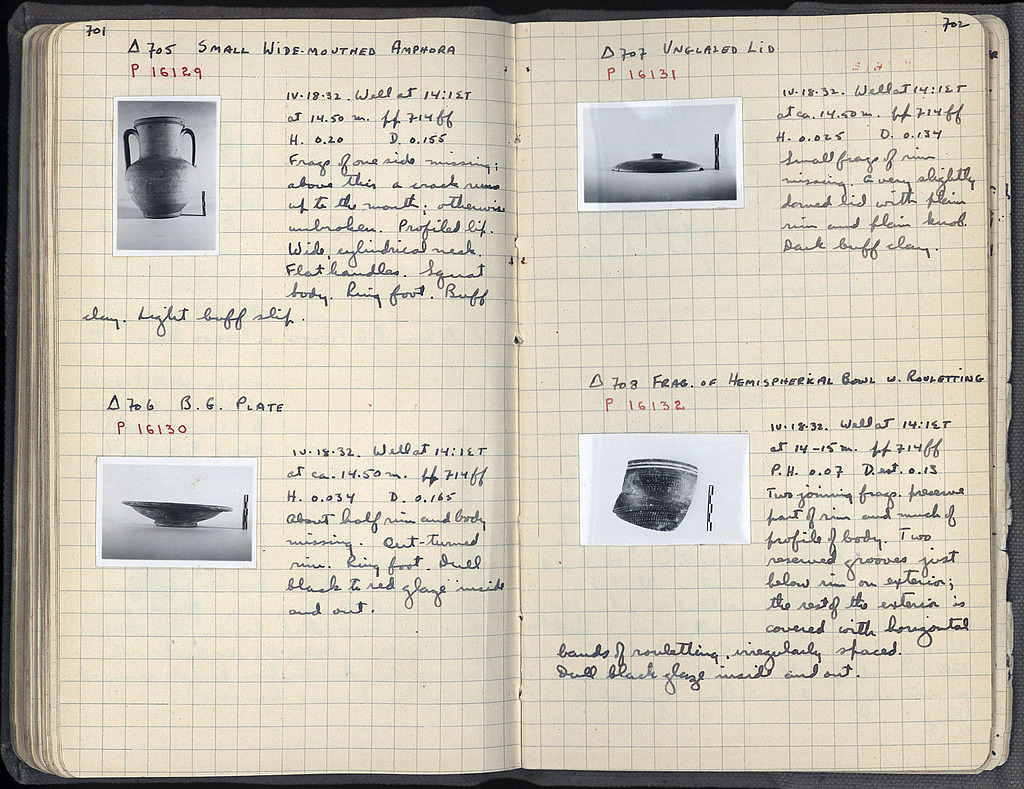 701
Δ 705 SMALL WIDE-MOUTHED AMPHORA
P 16129
IV-18-32. Well at 14:1ΣΤ
at 14.50 m. pp 714 ff
H. 0.20 D. 0.155
Frags of one side missing;
above this a crack runs
up to the mouth; otherwise
unbroken. Profiled lip.
Wide, cylindrical neck.
Flat handles. Squat
body. Ring foot. Buff
clay. Light buff slip.
Δ 706 B.G. PLATE
P 16130
IV-18-32. Well at 14:1ΣΤ
at ca. 14.50 m. pp 714 ff
H. 0.034 D. 0.165
About half rim and body
missing. Out-turned
rim. Ring foot. Dull
black to red glaze inside
and out.
702
Δ 707 UNGLAZED LID
P 16131
IV-18-32. Well at 14:1ΣΤ
at ca. 14.50 m. pp 714 ff
H. 0.025 D. 0.134
Small frags of rim
missing. A very slightly
domed lid with plain
rim and plain knob.
Dark buff clay.
Δ 708 FRAG. OF HEMISPHERICAL BOWL W. ROULETTING
P 16132
IV-18-32. Well at 14:1ΣΤ
at 14-15 m. pp 714 ff
P.H. 0.07 D. est. 0.13
Two joining frags. preserve
part of rim and much of
profile of body. Two
reserved grooves just
below rim on exterior;
the rest of the exterior is
covered with horizontal
bands of rouletting, irregularly spaced.
Dull black glaze inside and out.